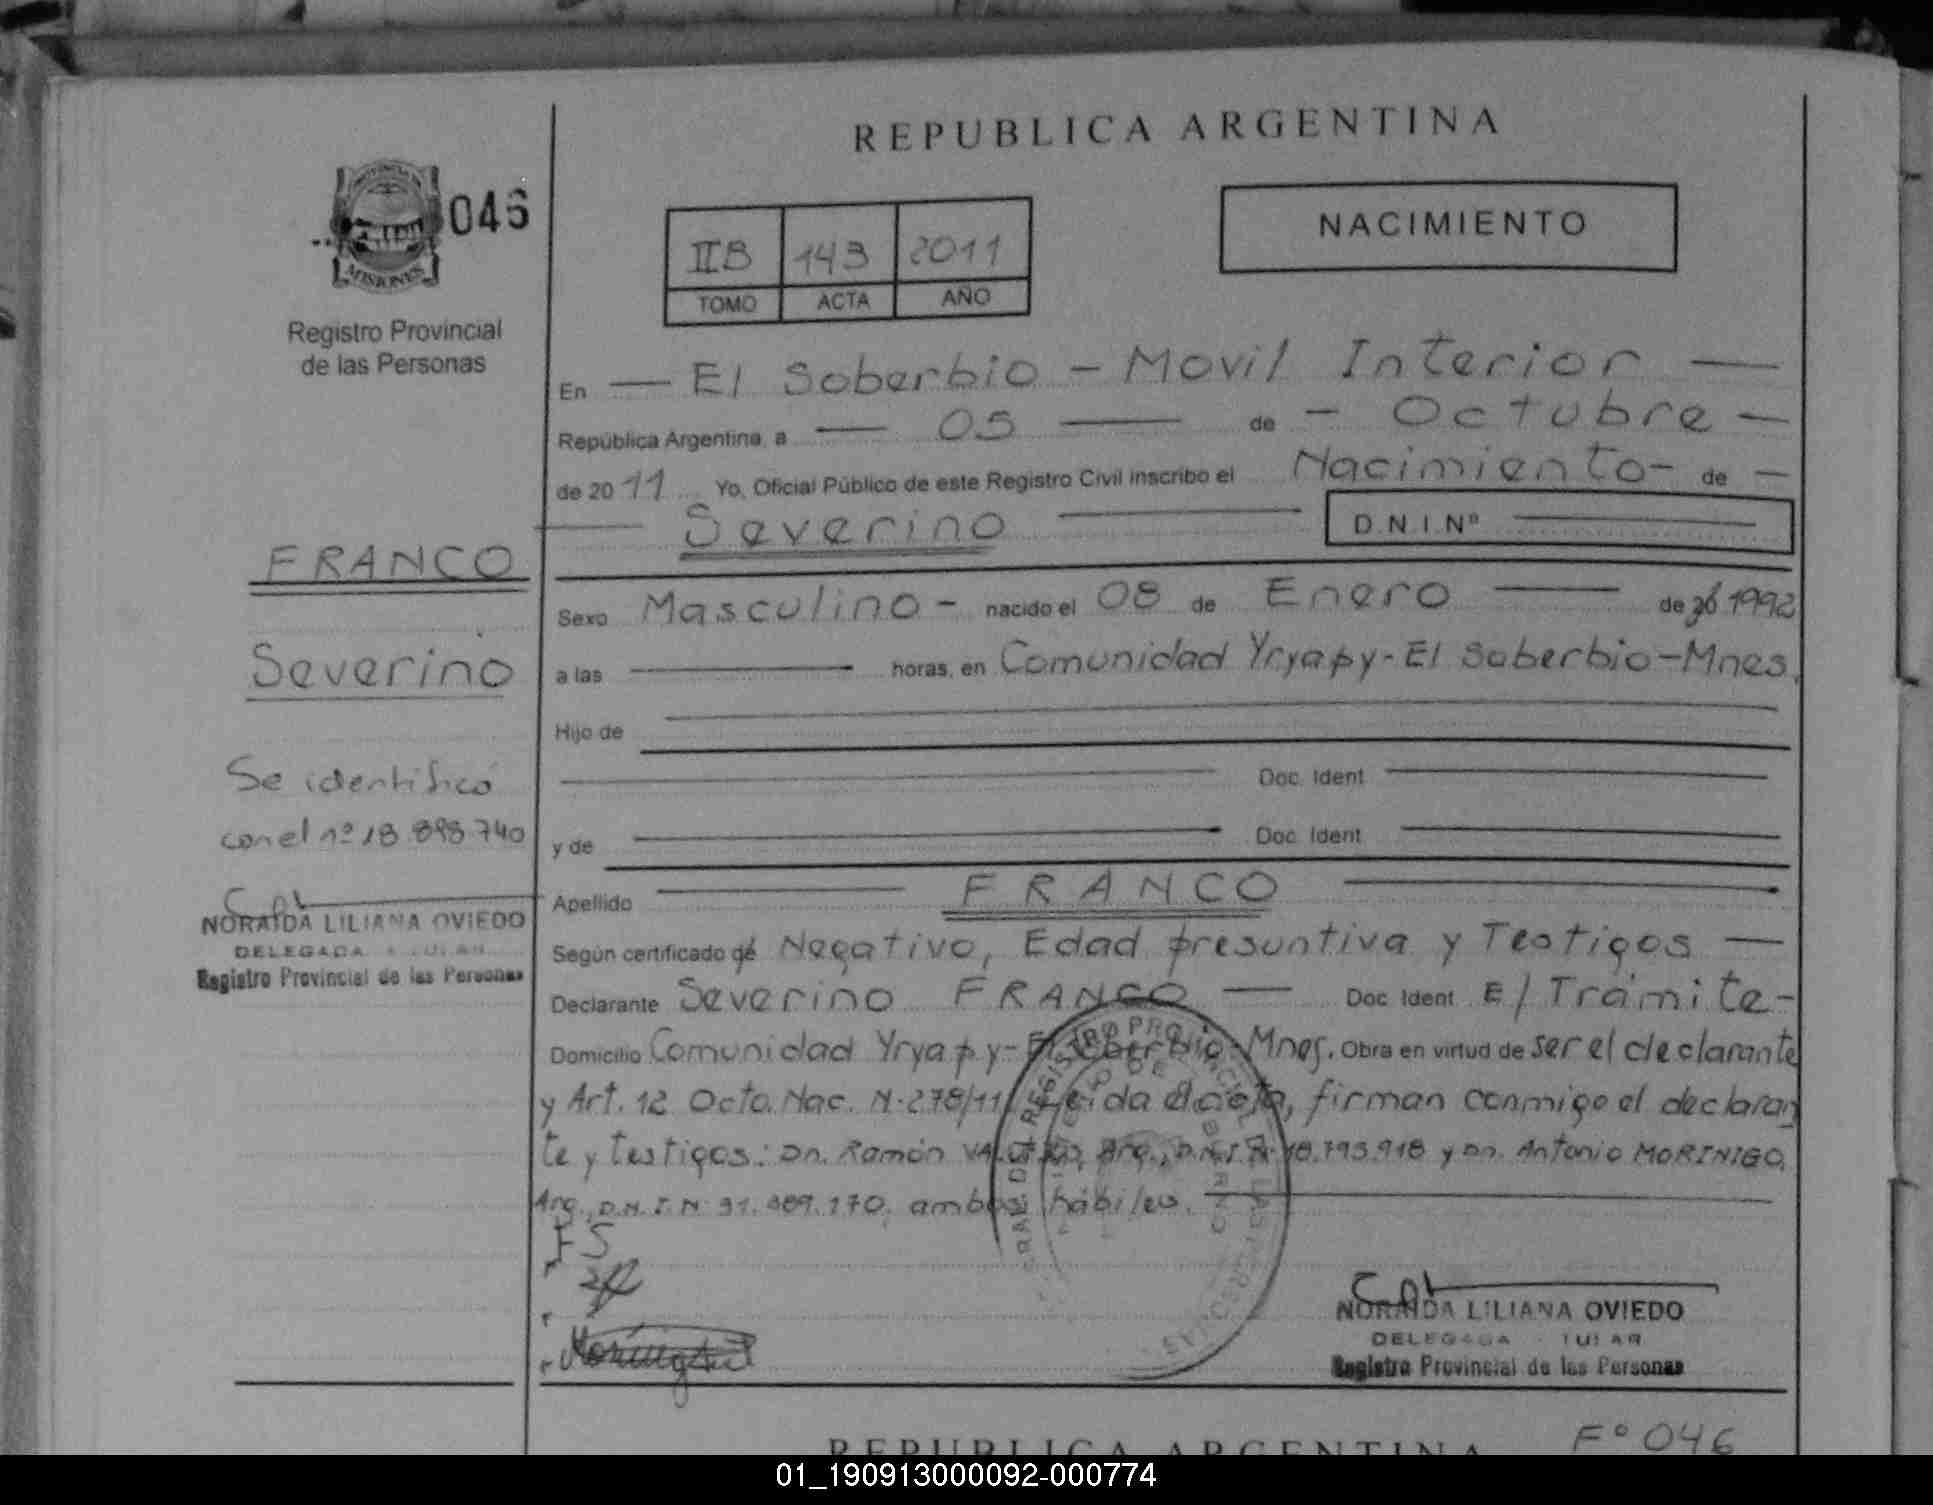 REPUBLICA ARGENTINA
046
MISIONES
Registro Provincial
de las Personas
IIB 143 2011
TOMO ACTA AÑO
NACIMIENTO
En — El Soberbio - Movil Interior —
República Argentina, a — 05 — de - Octubre —
de 20 11 Yo, Oficial Público de este Registro Civil inscribo el Nacimiento- de —
— Severino — D.N.I.Nº —
FRANCO
Severino
Se identificó
con el nº 18.898.740
NORAIDA LILIANA OVIEDO
DELEGADA
Registro Provincial de las Personas
Sexo Masculino - nacido el 08 de Enero — de 1992
a las — horas, en Comunidad Yryapy - El Soberbio - Mnes.
Hijo de —
— Doc. Ident. —
y de — Doc. Ident. —
Apellido — FRANCO —
Según certificado de Negativo, Edad presuntiva y Testigos —
Declarante Severino FRANCO — Doc. Ident. E/Trámite-
Domicilio Comunidad Yryapy - El Soberbio - Mnes. Obra en virtud de ser el declarante
y Art. 12 Dcto. Nac. N·278/11. Leida el acta, firman conmigo el declaran
te y testigos: Dn. Ramón Arg., D.N.I.N· y Dn. Antonio MORINIGO,
Arg., D.N.I.N· ambos hábiles. —
FS
REGISTRO PROVINCIAL DE LAS PERSONAS
NORAIDA LILIANA OVIEDO
DELEGADA
Registro Provincial de las Personas
REPUBLICA ARGENTINA
Fº 046
01_190913000092-000774